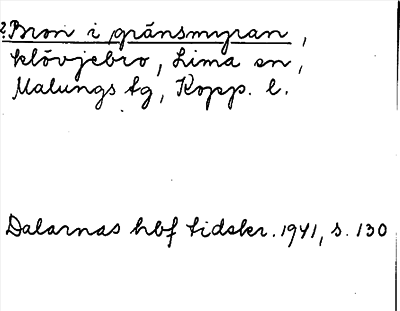 ? Bron i gränsmyran,
klövjebro, Lima sn,
Malungs tg, Kopp. l.
Dalarnas hbf tidskr. 1941, s. 130